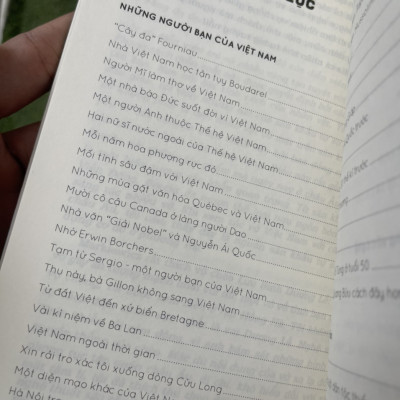 LỤC
NHỮNG NGƯỜI BẠN CỦA VIỆT NAM
"Cây đa" Fourniau
Nhà Việt Nam học tận tụy Boudarel
Người Mĩ làm thơ về Việt Nam
Một nhà báo Đức suốt đời vì Việt Nam
Một người Anh thuộc Thế hệ Việt Nam
Hai nữ sĩ nước ngoài của Thế hệ Việt Nam
Mỗi năm hoa phượng rực đỏ
Mối tình sâu đậm với Việt Nam
Những mùa gặt văn hóa Québec và Việt Nam
Mười cô cậu Canada ở làng người Dao
Nhà văn "Giải Nobel" và Nguyễn Ái Quốc
Nhớ Erwin Borchers
Tạm từ Sergio - một người bạn của Việt Nam
Thu này, bà Gillon không sang Việt Nam
Từ đất Việt đến xứ biển Bretagne
Vài kỉ niệm về Ba Lan
Việt Nam ngoài thời gian
Xin rải tro xác tôi xuống dòng Cửu Long
Một diện mạo khác của Việt Nam
Hà Nội tr